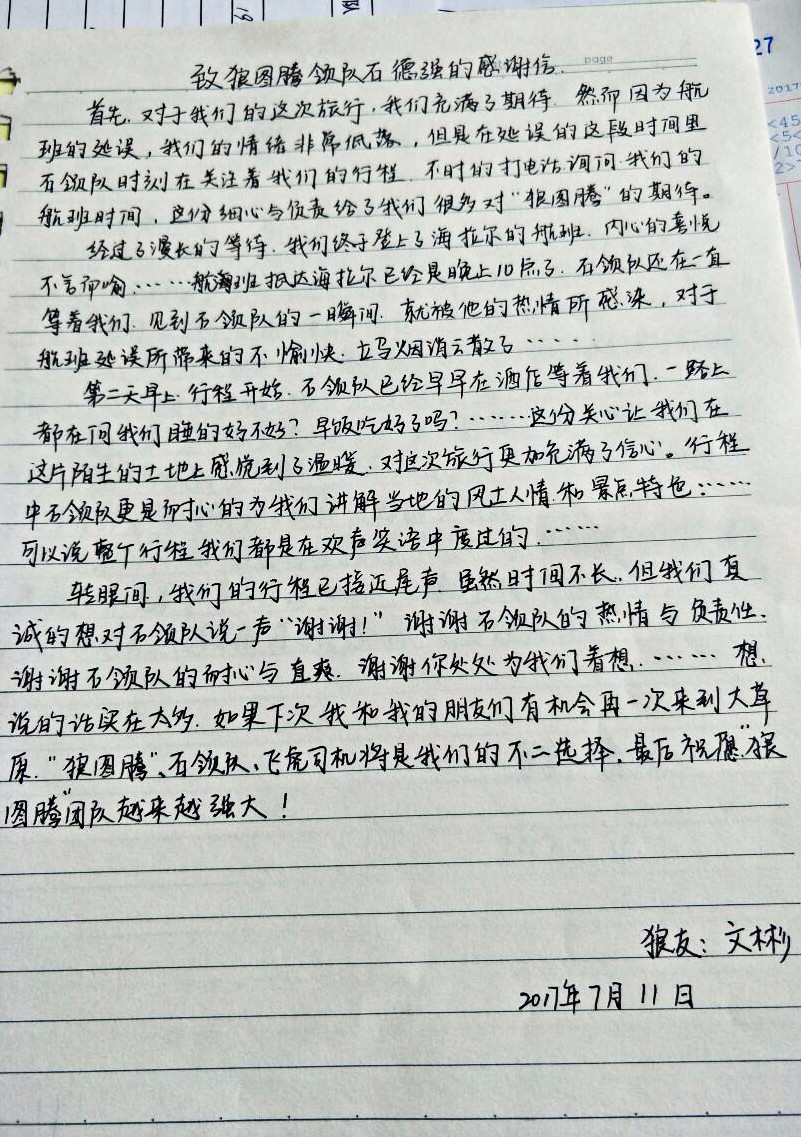 page
致狼图腾领队石德强的感谢信.
首先.对于我们的这次旅行.我们充满了期待.然而因为航
班的延误,我们的情绪非常低落,但是在延误的这段时间里
石领队时刻在关注着我们的行程.不时的打电话询问.我们的
航班时间,这份细心与负责给了我们很多对“狼图腾”的期待。
经过了漫长的等待.我们终于登上了海拉尔的航班.内心的喜悦
不言而喻……航班抵达海拉尔已经是晚上10点了.石领队还在一直
等着我们.见到石领队的一瞬间.就被他的热情所感染,对于
航班延误所带来的不愉快.立马烟消云散了……
第二天早上.行程开始.石领队已经早早在酒店等着我们.一路上
都在问我们睡的好不好?早饭吃好了吗?……这份关心让我们在
这片陌生的土地上感觉到了温暖.对这次旅行更加充满了信心。行程
中石领队更是耐心的为我们讲解当地的风土人情和景点特色……
可以说整个行程我们都是在欢声笑语中度过的.……
转眼间,我们的行程已接近尾声.虽然时间不长.但我们真
诚的想对石领队说一声“谢谢!”谢谢石领队的热情与负责任.
谢谢石领队的耐心与直爽.谢谢你处处为我们着想.……想
说的话实在太多.如果下次我和我的朋友们有机会再一次来到大草
原.“狼图腾”、石领队、飞虎司机将是我们的不二选择.最后祝愿“狼
图腾”团队越来越强大!
狼友:文彬
2017年7月11日
27
2017
<45
<5<
/10
2>